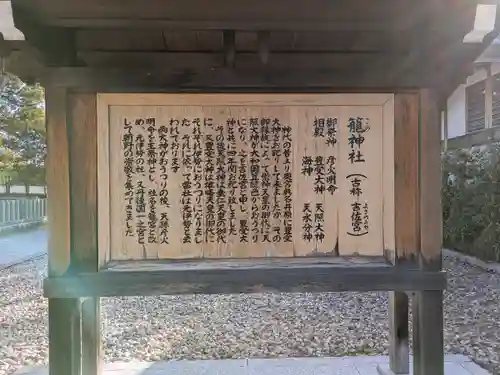 籠神社（古称 吉佐宮）
この
よさのみや
御祭神 彦火明命
相殿 豊受大神 天照大神
海神 天水分神
神代の昔より奥宮眞名井原に豊受
大神をお祀りして来ましたが、その
御縁故に依って崇神天皇の御代に天
照大神が大和国笠縫邑からおうつり
になり、之を吉佐宮と申し、豊受大
神と共に四年間お祀り致しました。
その後天照大神は垂仁天皇の御代
に、又豊受大神は雄略天皇の御代に
それぞれ伊勢におうつりになりまし
た。それに依って當社は元伊勢と云
われております
両大神がおうつりの後、天孫彦火
明命を主祭神とし、社名を籠宮と改
め、元伊勢の社、又丹後国一之宮と
して朝野の崇敬を集めて来ました